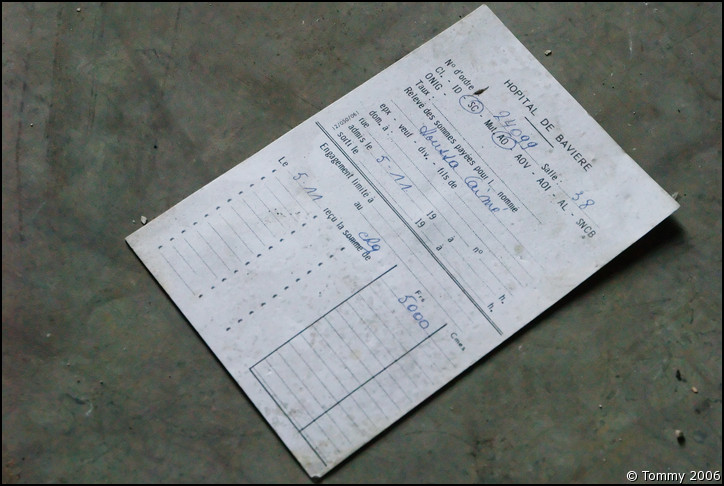 HOPITAL DE BAVIERE
N° d'ordre 24099 Salle 38
Cl. - ID - SC - Mut. AO - AOV - AOI - AL - SNCB
ONIG -
Taux :
Relevé des sommes payées pour l' nommé
epx - veuf - div. - fils de
dom. à :
rue 19 à n°
admis le 5.11 19 à h.
sorti le h.
Engagement limité à
au
Le reçu la somme de
5 11 chq
Frs Cmes
5000
© Tommy 2006